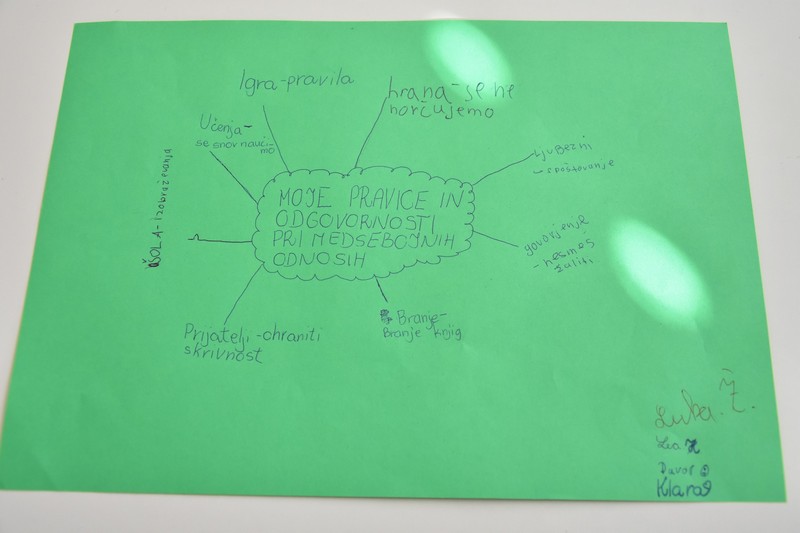 Igra-pravila
hrana-se ne
norčujemo
Učenja-
se snov nauči-
mo
ljubezni
- spoštovanje
ŠOLA-izobraževanje
MOJE PRAVICE IN
ODGOVORNOSTI
PRI MEDSEBOJNIH
ODNOSIH
govorjenje
- nesmeš
žaliti
Prijatelji-ohraniti
skrivnost
Branje-
Branje knjig
Luka. Ž.
Lea
Davor
Klara